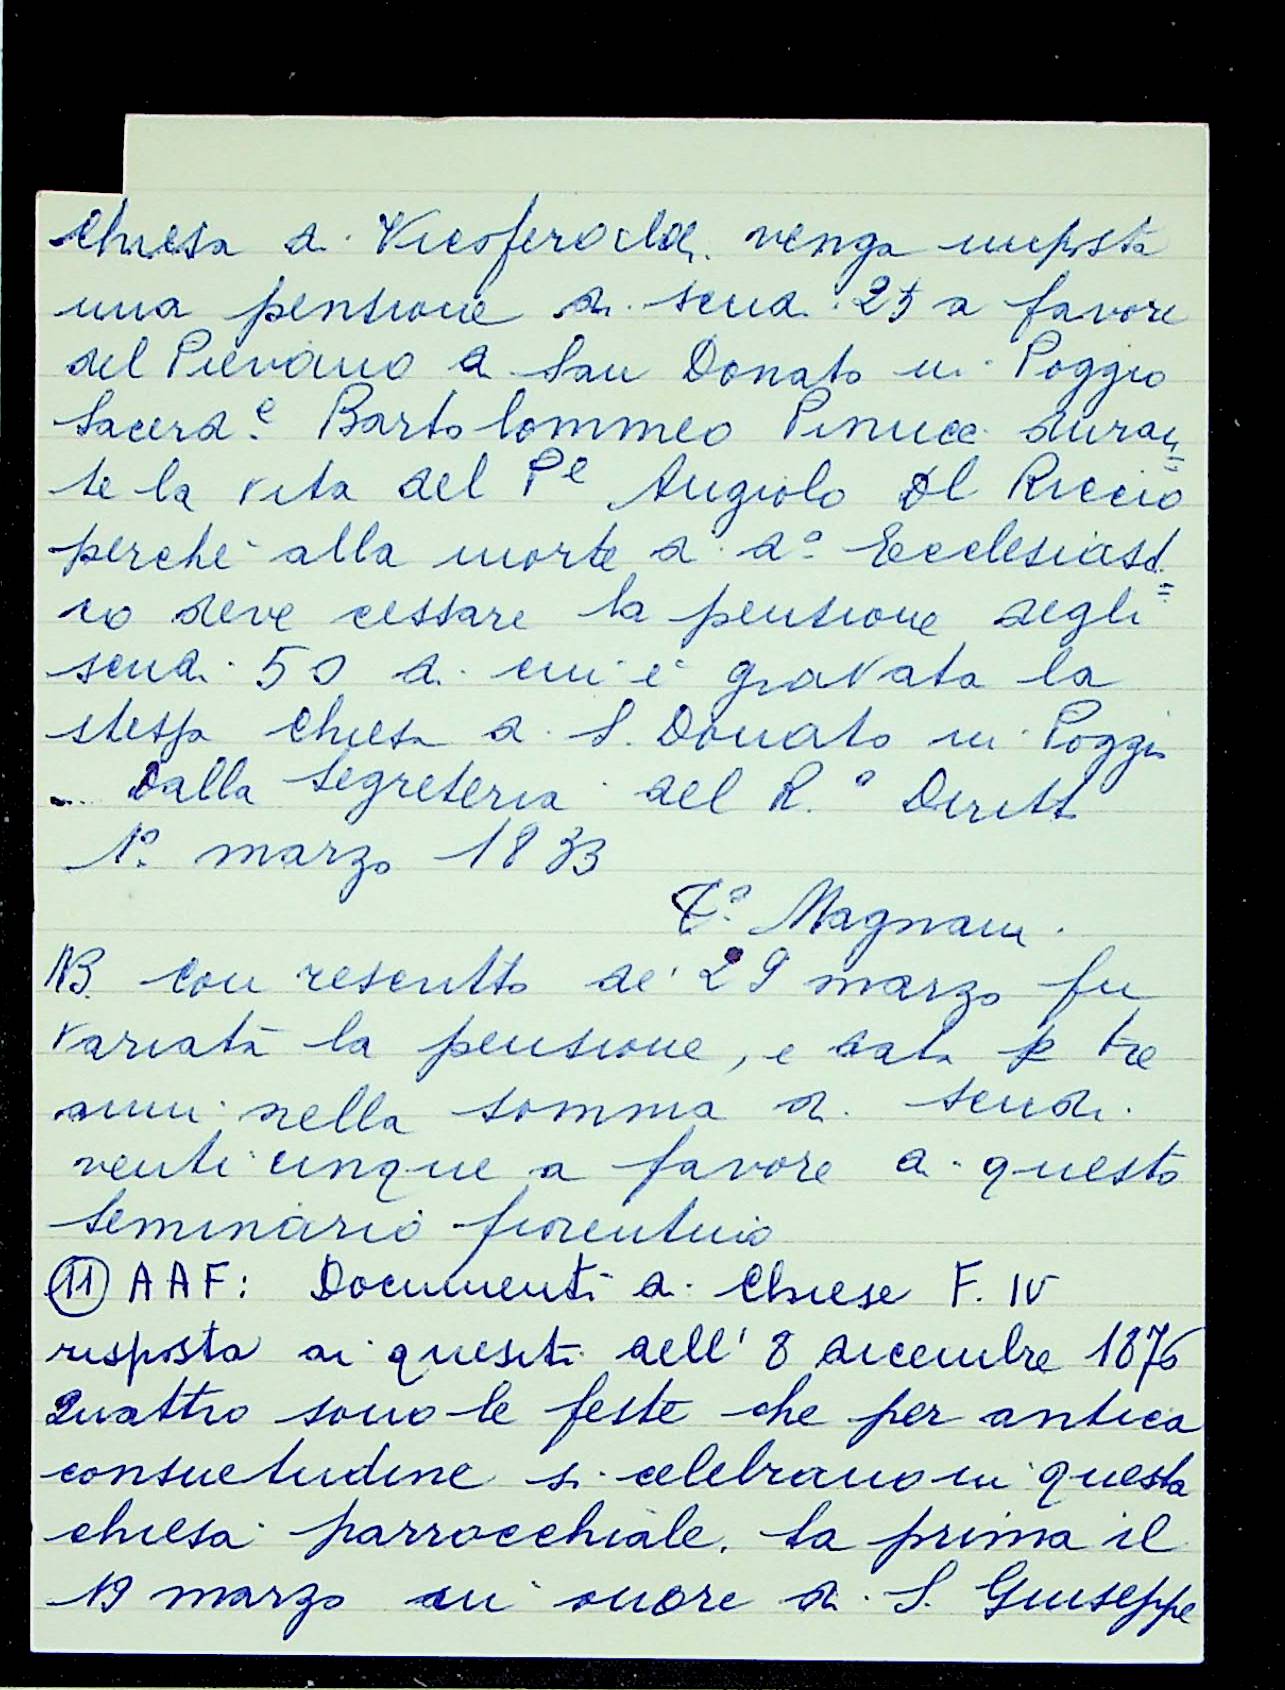 Chiesa di Vicoferaldi venga imposta
una pensione di scudi 25 a favore
del Pievano di San Donato in Poggio
Sacerd.e Bartolommeo Pinucci duran=
te la vita del Pe Angiolo Del Riccio
perché alla morte di do Ecclesiasti=
co deve cessare la pensione degli
scudi 50 di cui è gravata la
stessa Chiesa di S. Donato in Poggio
Dalla Segreteria del R.o Diritt
1o marzo 1833
Magnani.
NB. con rescritto de' 29 marzo fu
variata la pensione, e data p tre
anni nella somma di scudi
venticinque a favore di questo
Seminario fiorentino
(11) AAF: Documenti di Chiese F. IV
risposta ai quesiti dell' 8 dicembre 1876
Quattro sono le feste che per antica
consuetudine si celebrano in questa
chiesa parrocchiale. La prima il
19 marzo in onore di S. Giuseppe